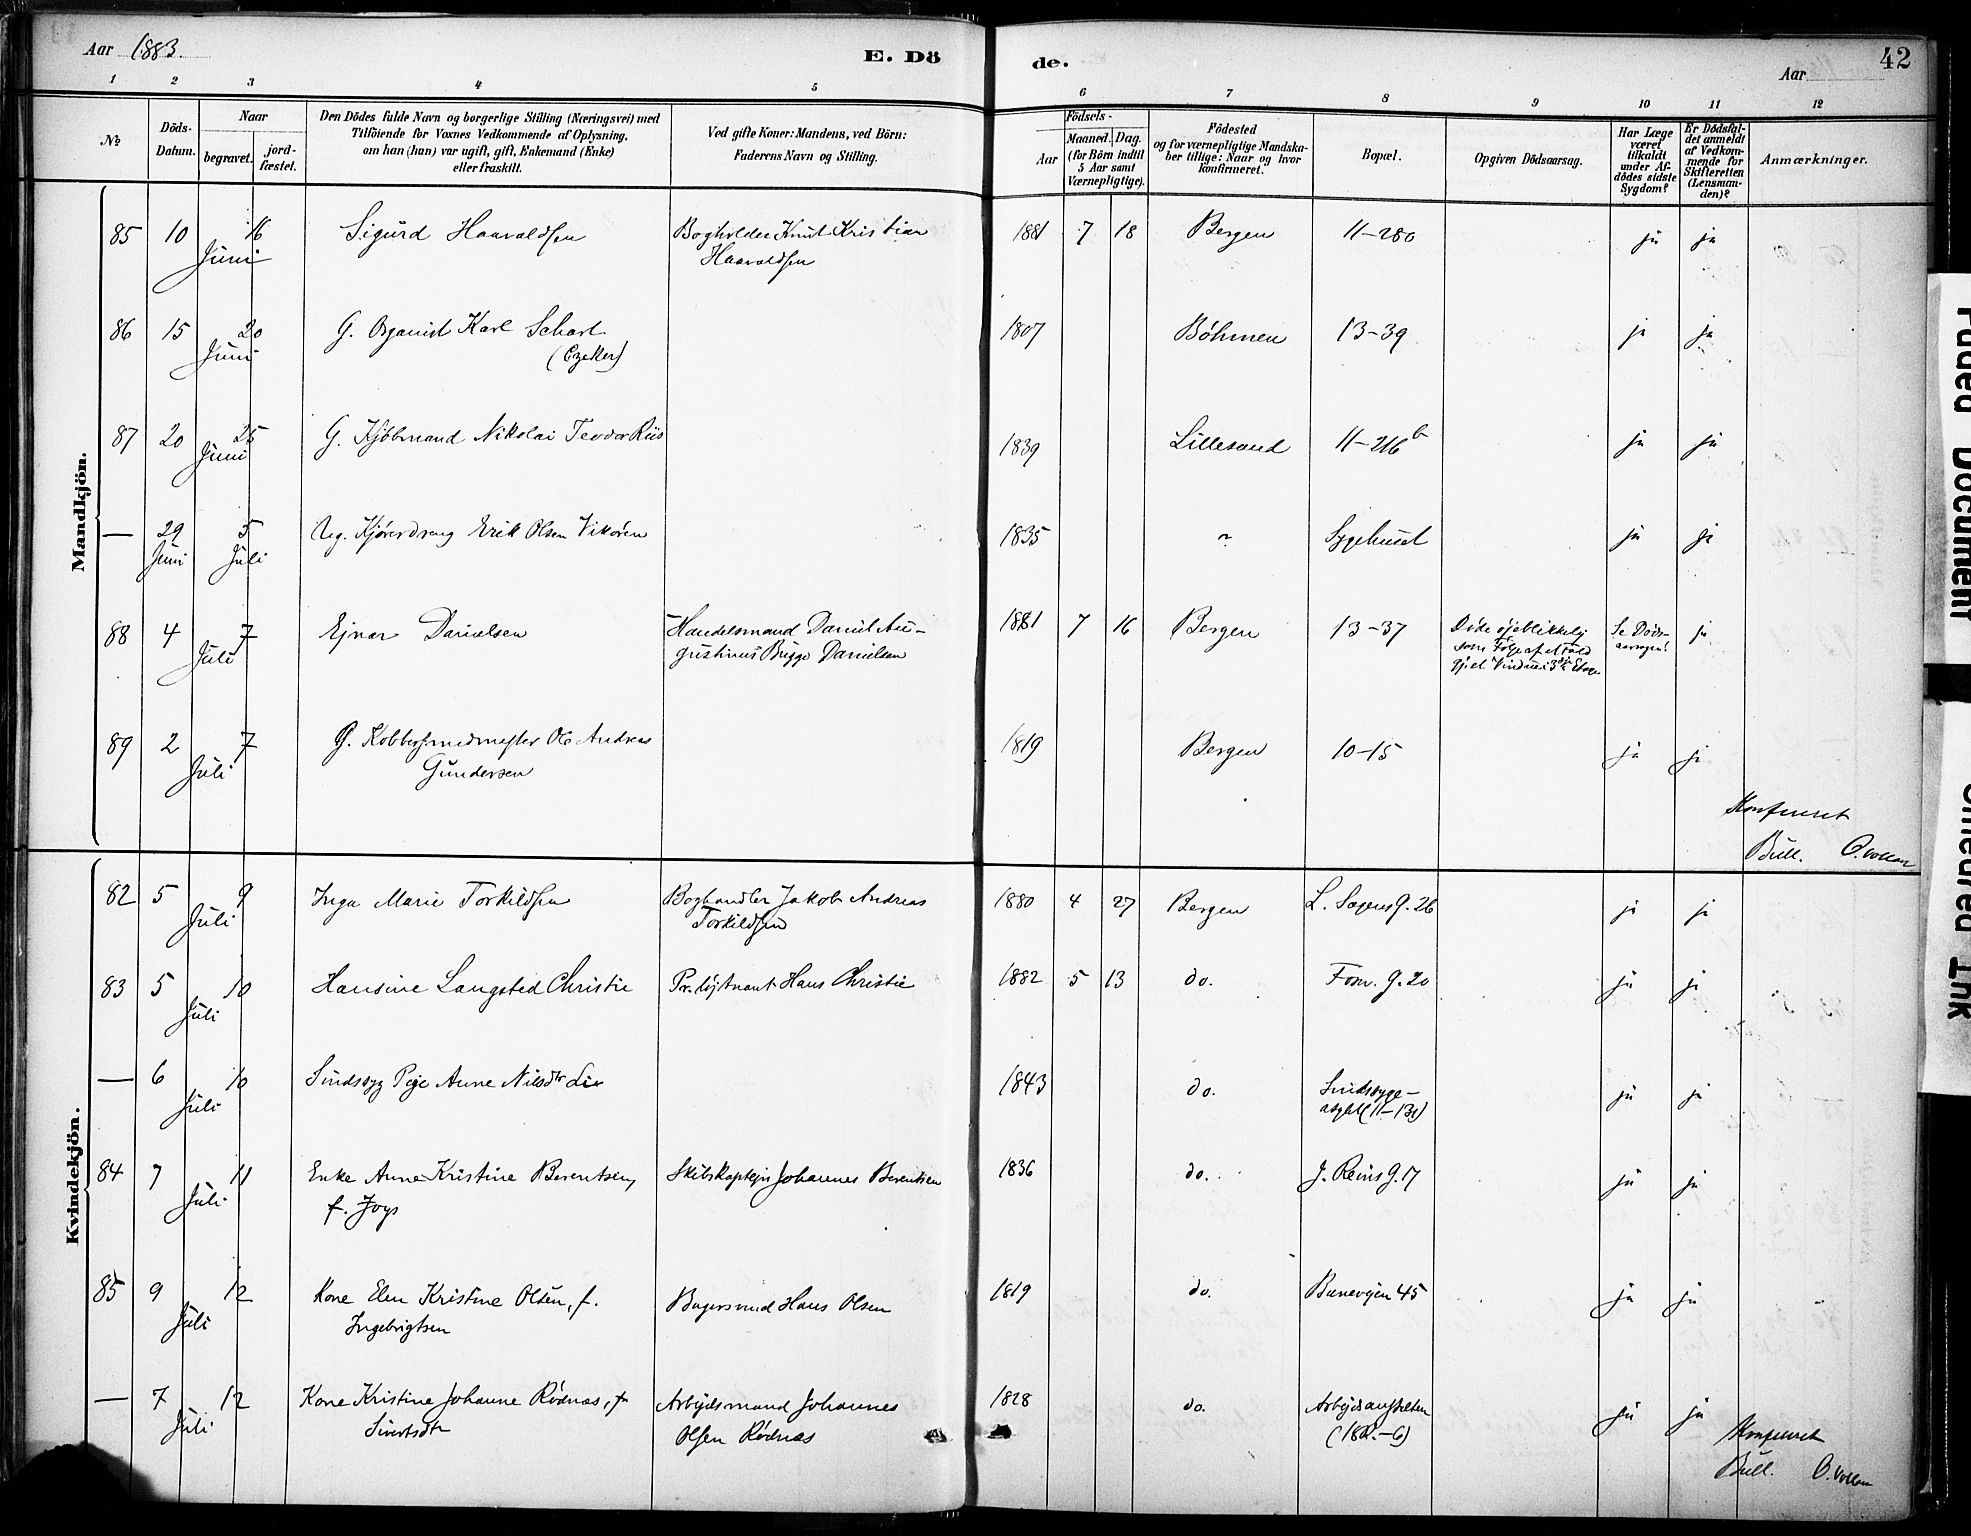 Aar 1883.
E. Dö
de.
Aar
42
1 2 3 4 5 6 7 8 9 10 11 12
No
Döds-
Datum.
Naar
begravet.
jord-
fæstet.
Den Dödes fulde Navn og borgerlige Stilling (Næringsvei) med
Tilföiende for Voxnes Vedkommende af Oplysning,
om han (hun) var ugift, gift, Enkemand (Enke)
eller fraskilt.
Ved gifte Koner: Mandens, ved Börn:
Faderens Navn og Stilling.
Födsels-
Aar
Maaned. Dag.
(for Börn indtil
5 Aar samt
Værnepligtige).
Födested
og for værnepligtige Mandska-
ber tillige: Naar og hvor
konfirmeret.
Bopæl.
Opgiven Dödsaarsag.
Har Læge
været
tilkaldt
under Af-
dödes sidste
Sygdom?
Er Dödsfal-
det anmeldt
af Vedkom-
mende for
Skifteretten
(Lensman-
den)?
Anmærkninger.
Mandkjön.
85 10 16 Sigurd Haavaldsen Bogholder Knut Kristian 1881 7 18 Bergen 11-280 ja ja
Juni Haavaldsen
86 15 20 G. Organist Karl Schart 1807 Böhmen 13-39 ja ja
Juni (Czeker)
87 20 25 G. Kjöbmand Nikolai Teodor Riis 1839 Lillesand 11-216 b ja ja
Juni
— 29 5 Ug. Kjøredreng Erik Olsen Vikøren 1835 Sygehuset ja ja
Juni Juli
88 4 7 Ejnar Danielsen Handelsmand Daniel Au- 1881 7 16 Bergen 13-37 Døde øjeblikkelig Se Døds- ja
Juli gustinus Brigge Danielsen som Følge af et Fald aarsagen!
89 2 7 G. Kobbersmedmester Ole Andreas 1819 Bergen 10-15 ja ja
Juli Gundersen
Konfereret
Bull. O. Vollan
Kvindekjön.
82 5 9 Inga Marie Torkildsen Boghandler Jakob Andreas 1880 4 27 Bergen L. Sagens G. 26 ja ja
Juli Torkildsen
83 5 10 Hansine Langsted Christie Pr. løjtnant Hans Christie 1882 5 13 do. Fosw. G. 20 ja ja
Juli
— 6 10 Sindssyg Pige Anne Nilsdtr Lie 1843 do. Sindssyge- ja ja
Juli
84 7 11 Enke Anne Kristine Berentsen, Skibskaptejn Johannes Berentsen 1836 do. J. Reins G. 17 ja ja
Juli f. Joys
85 9 12 Kone Elen Kristine Olsen, f. Bagersvend Hans Olsen 1819 do. Banevejen 45 ja ja
Juli Ingebrigtsen
— 7 12 Kone Kristine Johanne Rødnæs, f. Arbejdsmand Johannes 1828 do. Arbejdsanstalten ja ja
Juli Sivertsdtr Olsen Rødnæs
Konfereret
Bull. O. Vollan
Faded Document
Smeared Ink